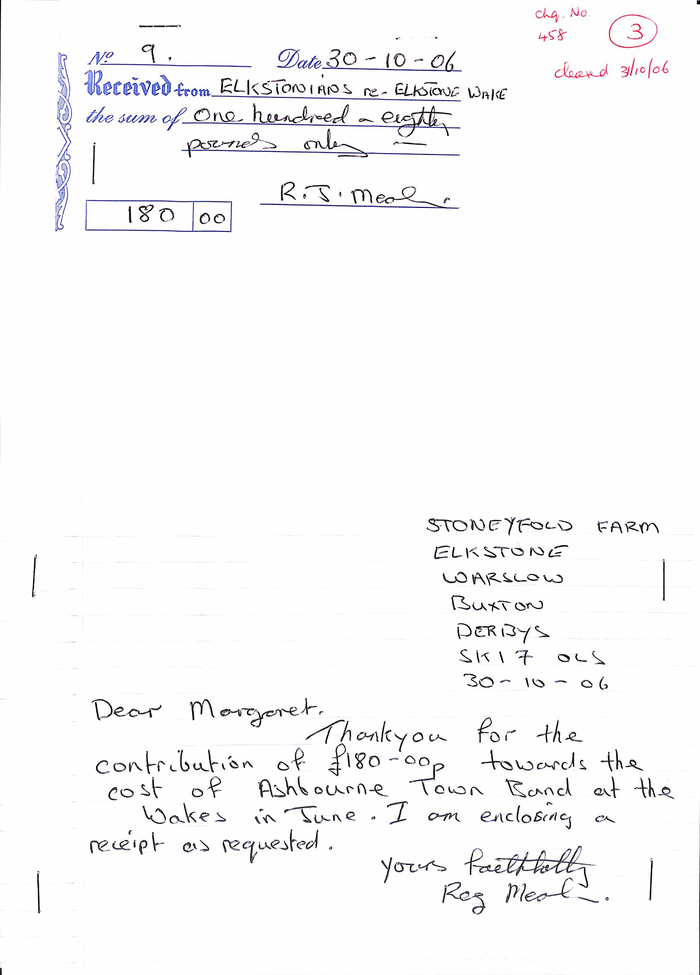 chq. No.
458
3
cleared 31/10/06
No 9. Date 30-10-06
Received from ELKSTONIANS re- ELKSTONE WAKE
the sum of One hundred & eighty
pounds only —
R. J. Meal
180 00
STONEYFOLD FARM
ELKSTONE
WARSLOW
BUXTON
DERBYS
SK17 OLS
30-10-06
Dear Margaret.
Thankyou for the
contribution of £180-00p towards the
cost of Ashbourne Town Band at the
Wakes in June. I am enclosing a
receipt as requested.
yours faithfully
Reg